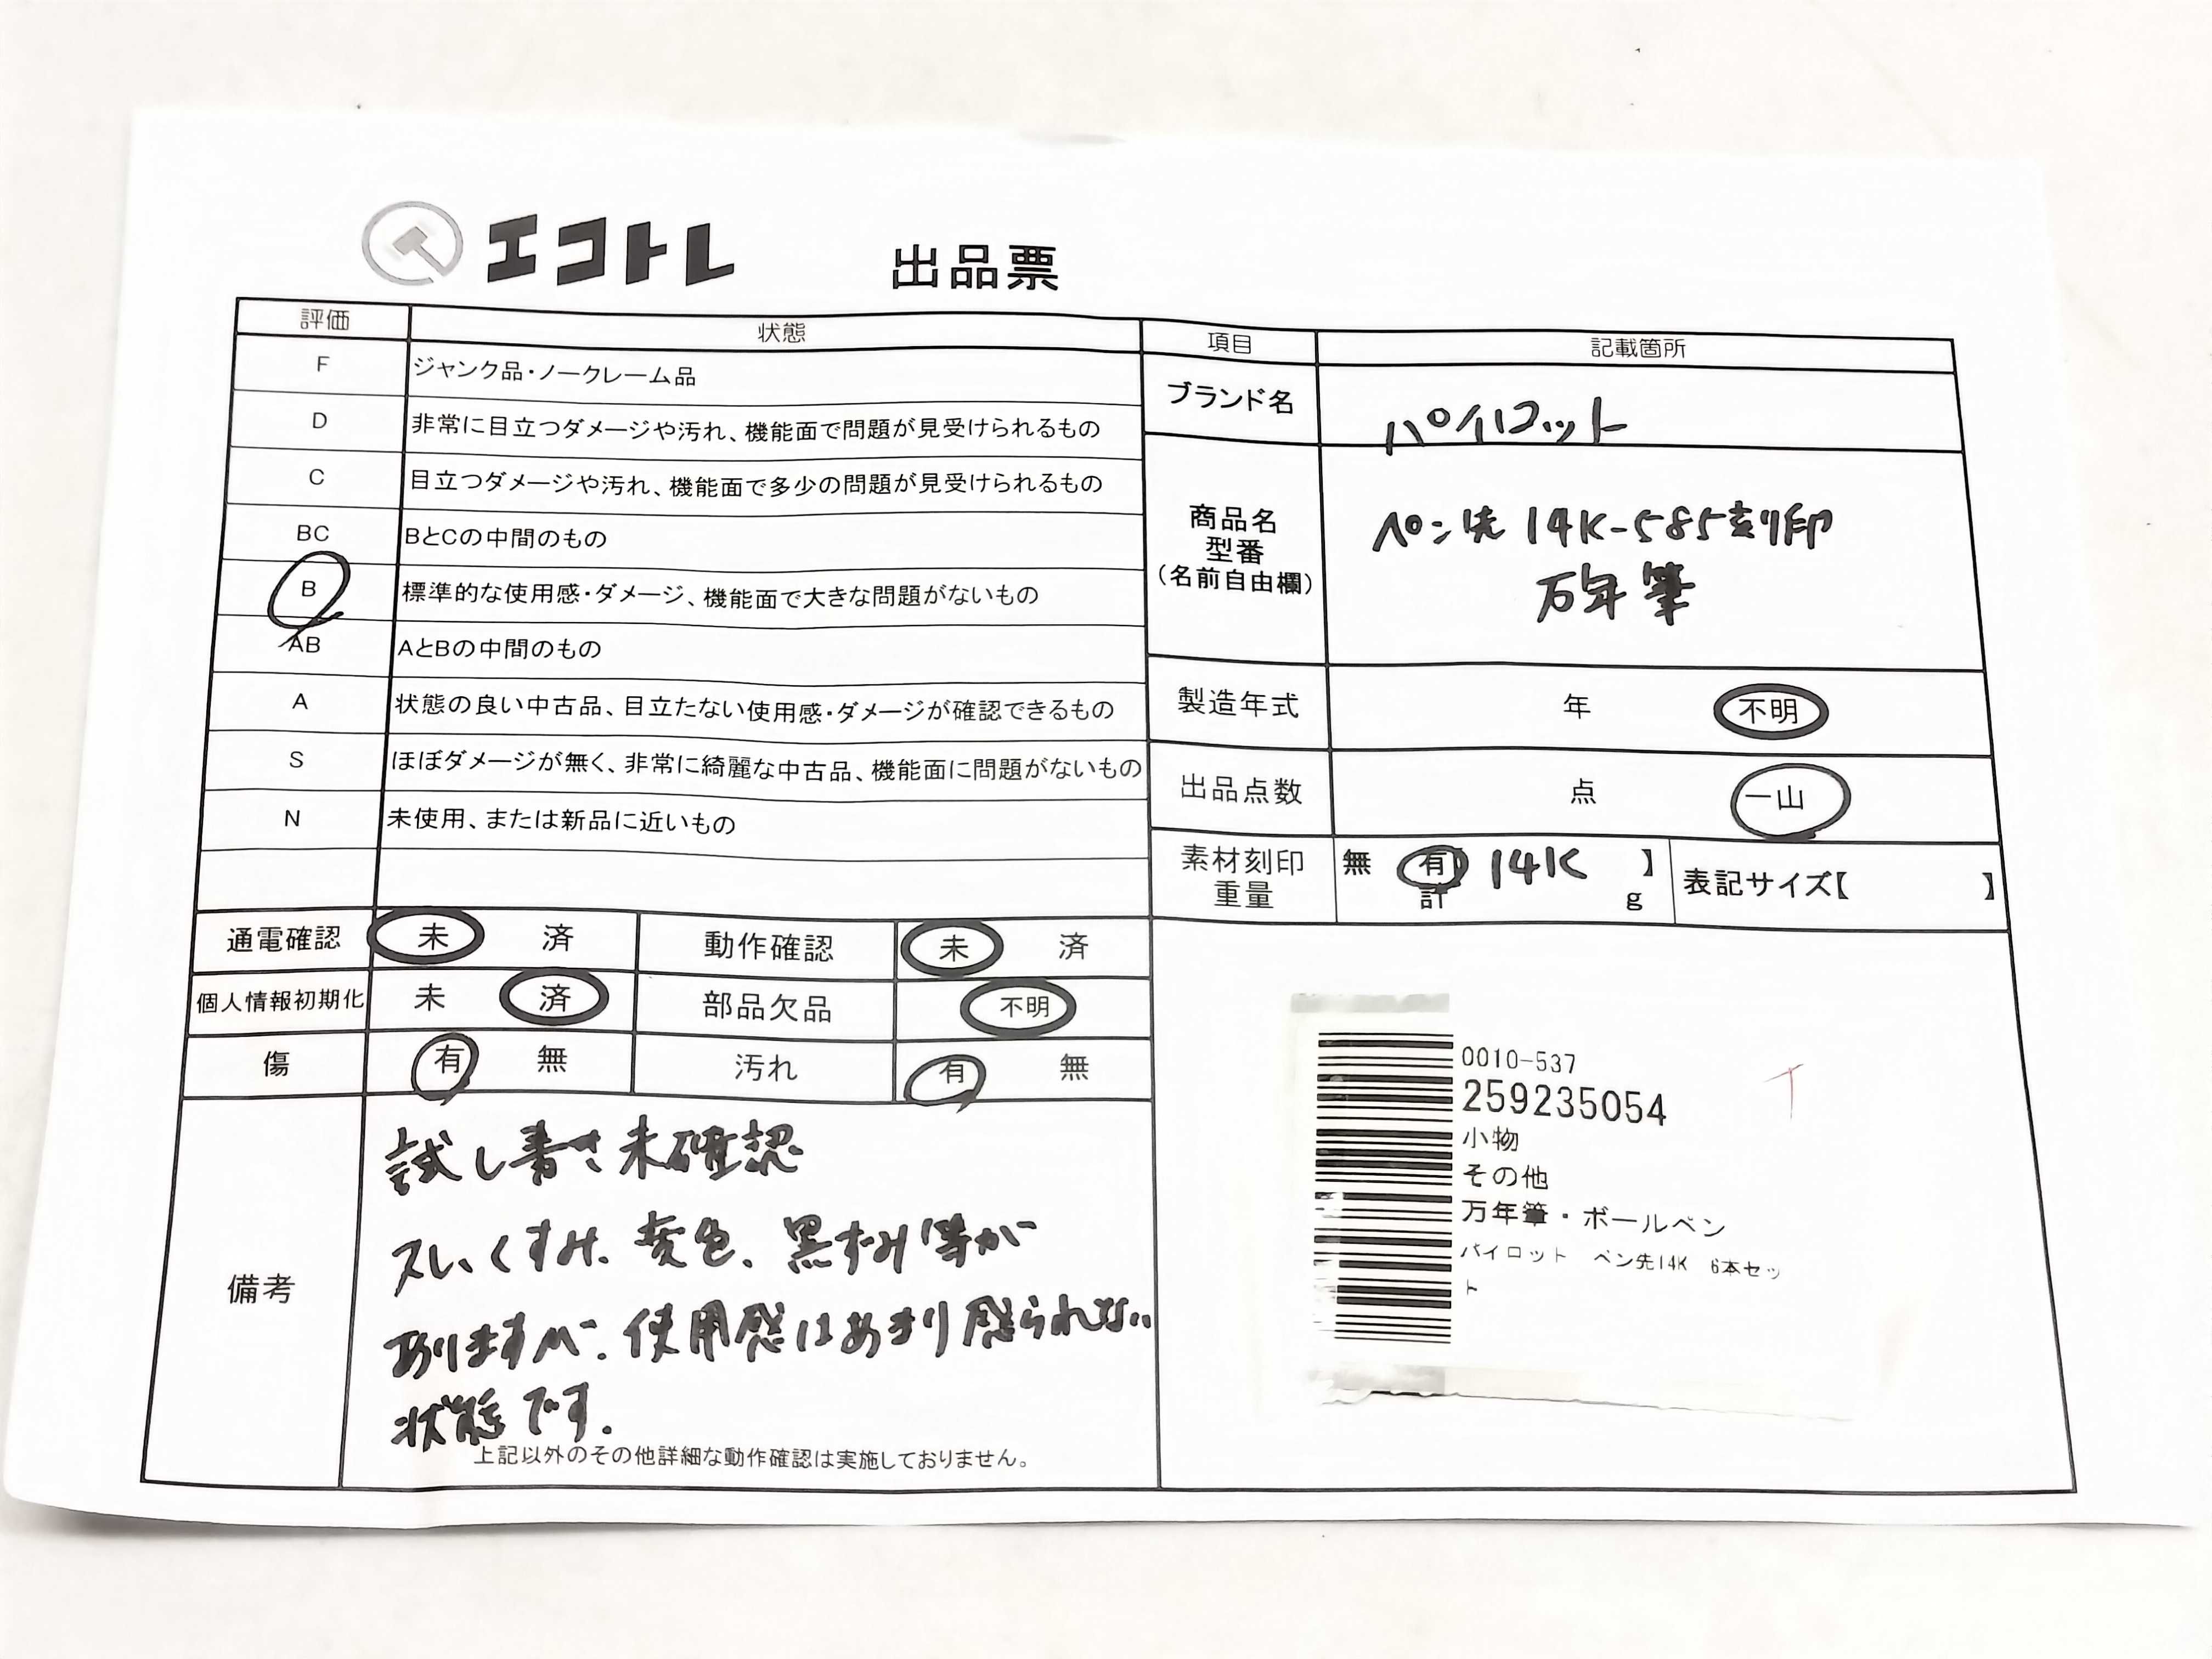 エコトレ 出品票
評価 状態
F ジャンク品・ノークレーム品
D 非常に目立つダメージや汚れ、機能面で問題が見受けられるもの
C 目立つダメージや汚れ、機能面で多少の問題が見受けられるもの
BC BとCの中間のもの
B 標準的な使用感・ダメージ、機能面で大きな問題がないもの
AB AとBの中間のもの
A 状態の良い中古品、目立たない使用感・ダメージが確認できるもの
S ほぼダメージが無く、非常に綺麗な中古品、機能面に問題がないもの
N 未使用、または新品に近いもの
通電確認 未 済 動作確認 未 済
個人情報初期化 未 済 部品欠品 不明
傷 有 無 汚れ 有 無
備考
試し書き未確認
スレ、くすみ、変色、黒ずみ等が
ありますが、使用感はあまり感られない
状態です。
上記以外のその他詳細な動作確認は実施しておりません。
項目 記載箇所
ブランド名 パイロット
商品名
型番
(名前自由欄)
ペン先 14K-585刻印
万年筆
製造年式 年 不明
出品点数 点 一山
素材刻印 無 有 14K 】
重量 計 g
表記サイズ【 】
0010-537
259235054
小物
その他
万年筆・ボールペン
パイロット ペン先14K 6本セッ
ト